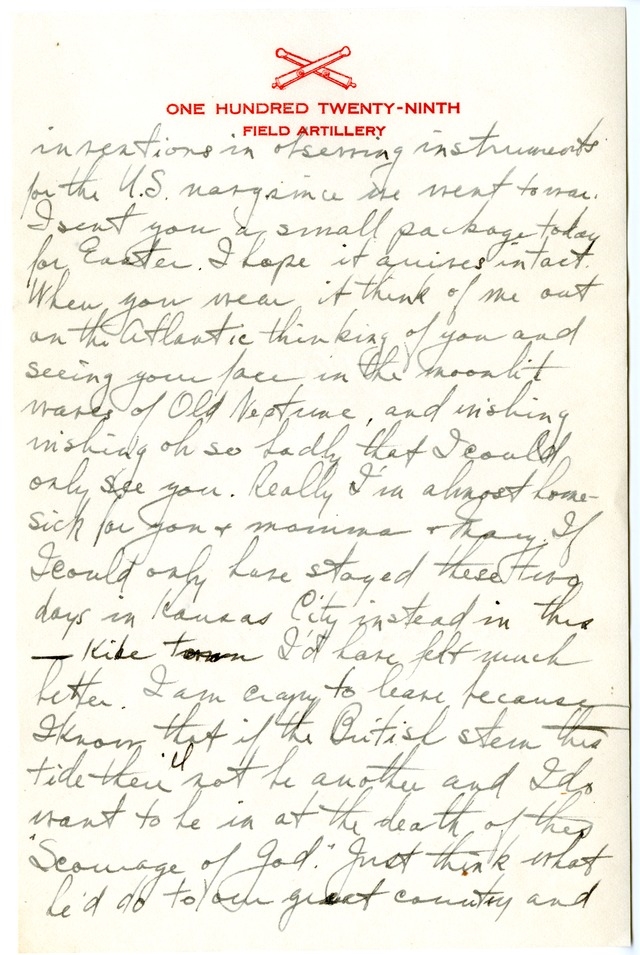 ONE HUNDRED TWENTY-NINTH
FIELD ARTILLERY
inventions in observing instruments
for the U.S. navy since we went to war.
I sent you a small package today
for Easter. I hope it arrives intact.
When you wear it think of me out
on the Atlantic thinking of you and
seeing your face in the moonlit
waves of Old Neptune, and wishing
wishing oh so badly that I could
only see you. Really I'm almost home-
sick for you + mamma + Mary. If
I could only have stayed these two
days in Kansas City instead in this
— Kike town I'd have felt much
better. I am crazy to leave because
I know that if the British stem this
tide there'll not be another and I do
want to be in at the death of this
"Scourage of God." Just think what
he'd do to our great country and